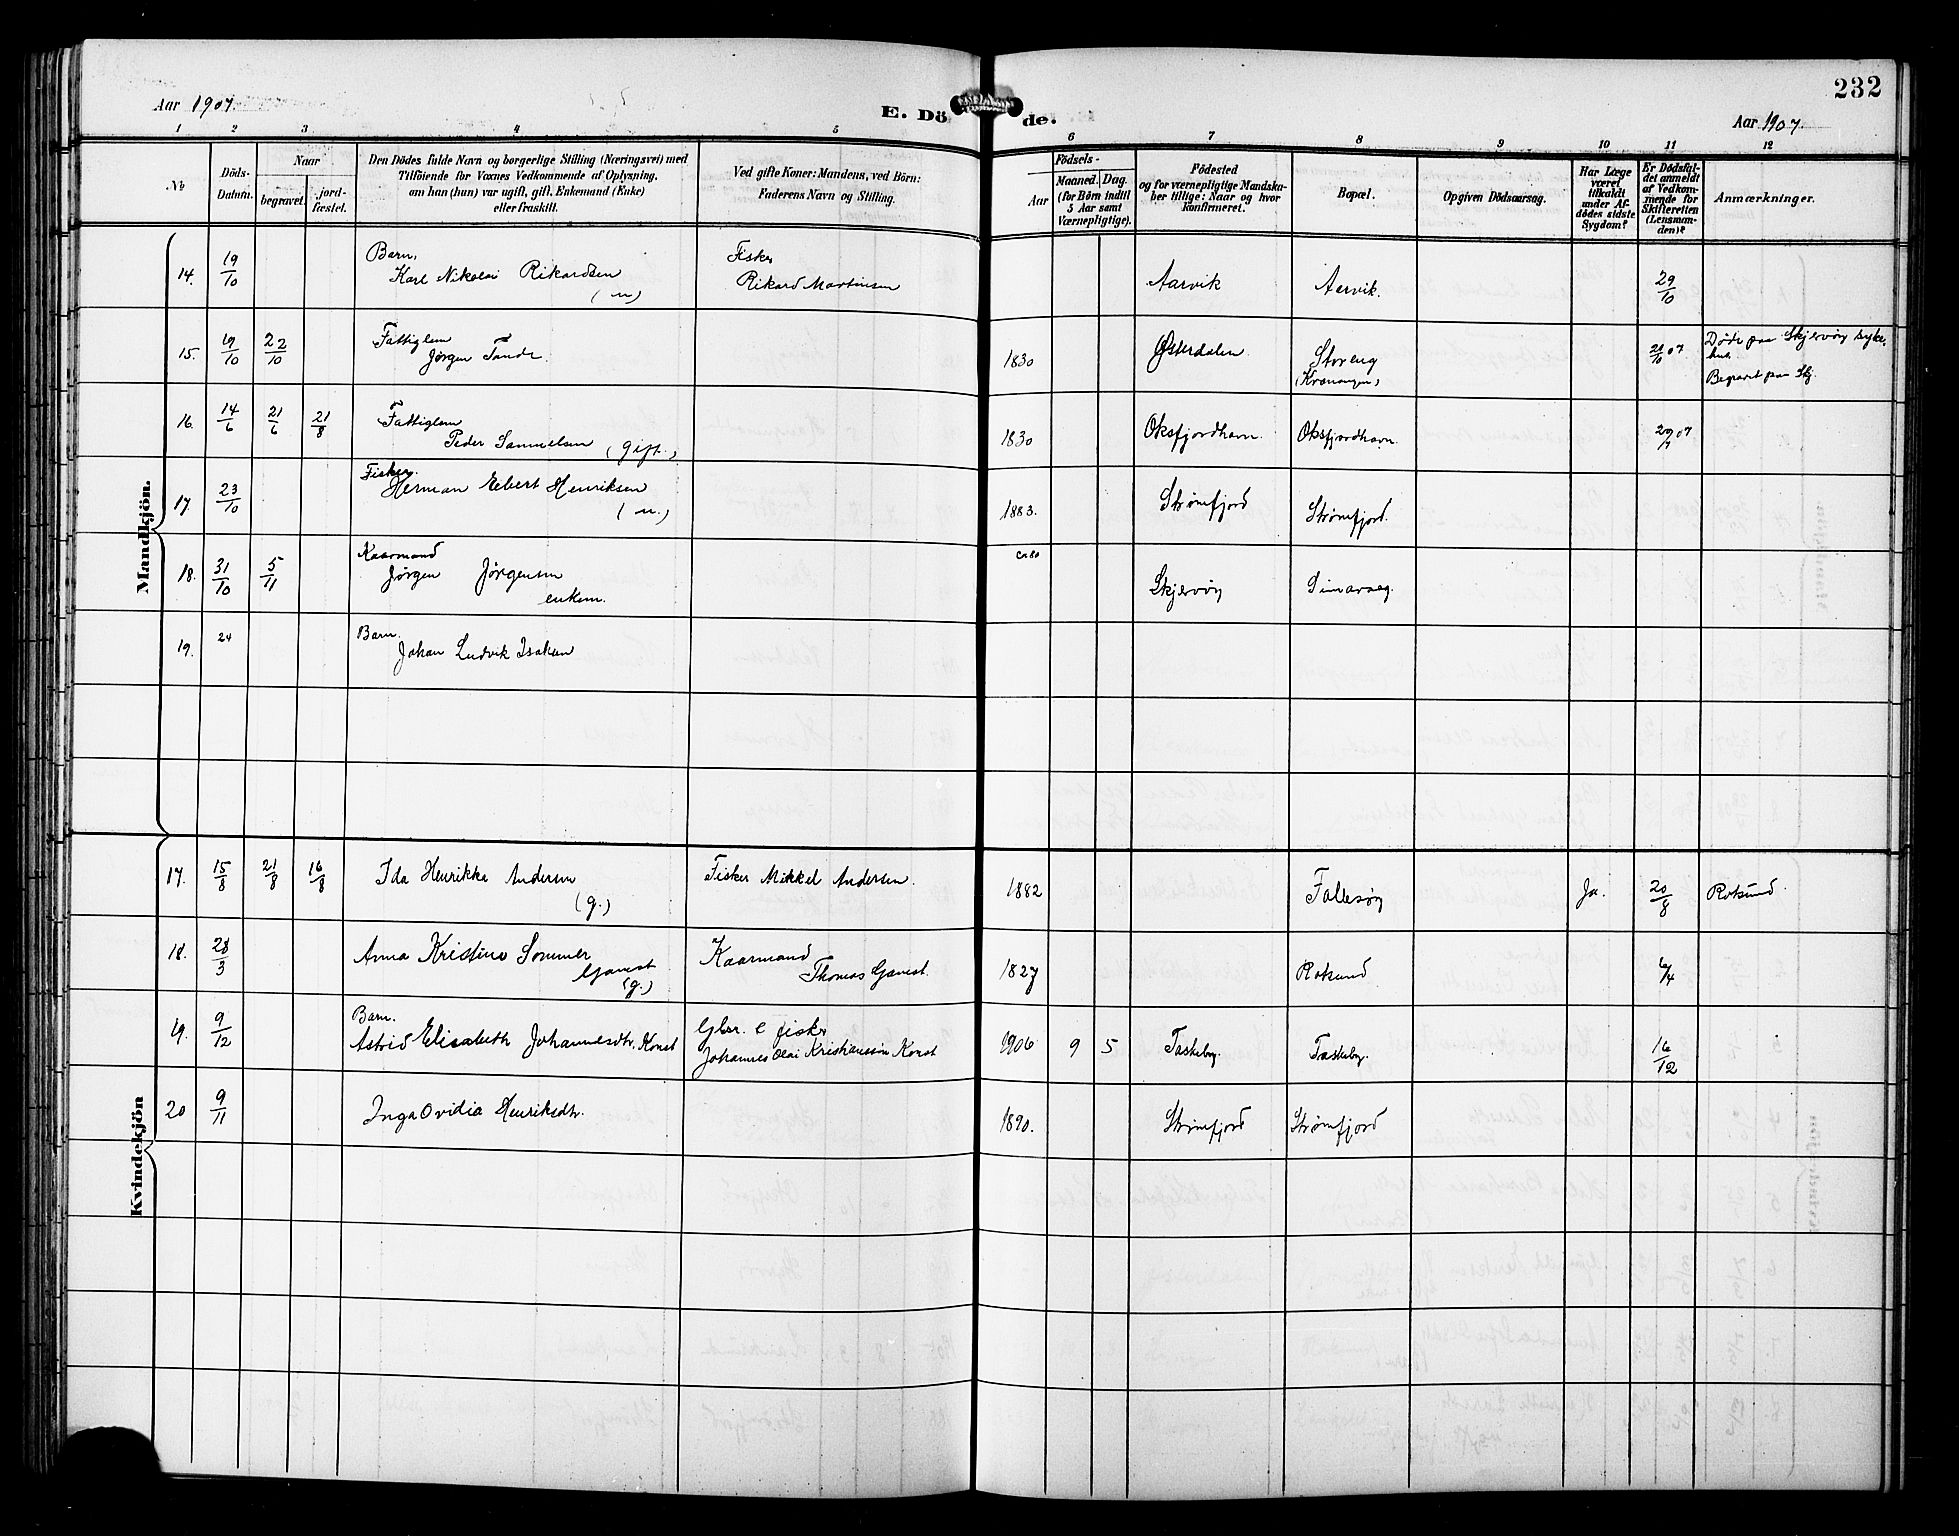 232
Aar 1907.
E. Döde.
Aar 1907.
1 2 3 4 5 6 7 8 9 10 11 12
No
Döds-Datum.
Naar
begravet.
jord-fæstet.
Den Dödes fulde Navn og borgerlige Stilling (Næringsvei) med
Tilföiende for Voxnes Vedkommende af Oplysning,
om han (hun) var ugift, gift, Enkemand (Enke)
eller fraskilt.
Ved gifte Koner: Mandens, ved Börn:
Faderens Navn og Stilling.
Födsels-
Aar
Maaned. Dag.
(for Börn indtil
5 Aar samt
Værnepligtige).
Födested
og for værnepligtige Mandska-
ber tillige: Naar og hvor
konfirmeret.
Bopæl.
Opgiven Dödsaarsag.
Har Læge
været
tilkaldt
under Af-
dödes sidste
Sygdom?
Er Dödsfal-
det anmeldt
af Vedkom-
mende for
Skifteretten
(Lensman-
den)?
Anmærkninger.
Mandkjön.
14. 19/10 Barn, Fisker
Karl Nikolai Rikardsen Rikard Martinsen Aarvik Aarvik. 29/10
(u)
15. 19/10 22/10 Fattiglem
Jørgen Tande. 1830 Østerdalen Storeng 21/10 07 Døde paa Skjervøy syke-
hus.
(Kvænangen) Begravet paa Skj.
16. 14/6 21/6 21/8 Fattiglem
Peder Samuelsen (gift.) 1830 Oksfjordhavn. Oksfjordhavn. 07
17. 23/10 Fisker.
Herman Eebert Henriksen 1883. Strømfjord Strømfjord.
(u.)
18. 31/10 5/11 Kaarmand ca 80
Jørgen Jørgensen Skjervøy
enkem.
19. 24 Barn.
Johan Ludvik Isaksen
Kvindekjön
17. 15/8 21/8 16/8 Ida Henrikka Andersen Fisker Mikkel Andersen. 1882 Follesøy Ja. 20/8 Rotsund.
(g.)
18. 28/3 Anna Kristine Sommer Kaarmand
Gamst Thomas Gamst. 1827 Rotsund 6/4
(g.)
19. 9/12 Barn. Gbr. e fisker
Astrid Elisabeth Johannesdtr. Konst Johannes Olai Kristiansson Konst 1906 9 5 Taskeby. Taskeby. 16/12
20 9/11 Inga Ovidia Henriksdtr. 1890. Strømfjord Strømfjord